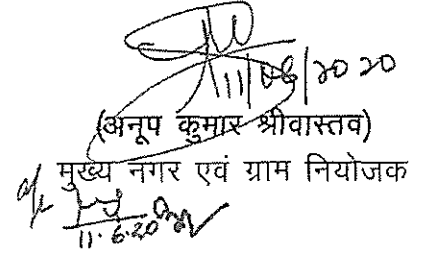 11/06/2020
(अनूप कुमार श्रीवास्तव)
मुख्य नगर एवं ग्राम नियोजक
11.6.20